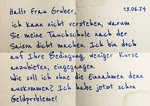 Hallo Frau Gruber, 13.06.24
ich kann nicht verstehen, warum
Sie meine Tanzschule nach der
Saison dicht machen. Ich bin doch
auf Ihre Bedingung, weniger Kurse
anzubieten, eingegangen.
Wie soll ich ohne die Einnahmen denn
auskommen? Ich habe jetzt schon
Geldprobleme!